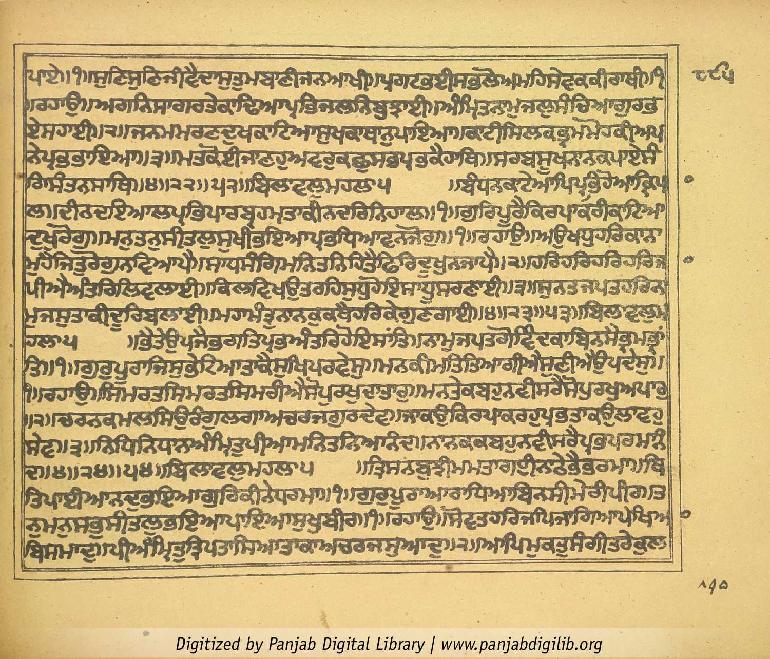 ਪਾਏ॥੧॥ਸੁਣਿਸੁਣਿਜੀਵੈਦਾਸੁਤੁਮਬਾਣੀਜਨਆਖੀ॥ਪ੍ਰਗਟਭਈਸਭਲੋਅਮਹਿਸੇਵਕਕੀਰਾਖੀ॥੧
॥ਰਹਾਉ॥ਅਗਨਿਸਾਗਰਤੇਕਾਢਿਆਪ੍ਰਭਿਜਲਨਿਬੁਝਾਈ॥ਅੰਮ੍ਰਿਤਨਾਮੁਜਲੁਸੰਚਿਆਗੁਰਭ
ਏਸਹਾਈ॥੨॥ਜਨਮਮਰਣਦੁਖਕਾਟਿਆਸੁਖਕਾਥਾਨੁਪਾਇਆ॥ਕਾਟੀਸਿਲਕਭ੍ਰਮਮੋਹਕੀਅਪ
ਨੇਪ੍ਰਭਭਾਇਆ॥੩॥ਮਤਕੋਈਜਾਣਹੁਅਵਰੁਕਛੁਸਭਪ੍ਰਭਕੈਹਾਥਿ॥ਸਰਬਸੂਖਨਾਨਕਪਾਏਸੰ
ਗਿਸੰਤਨਸਾਥਿ॥੪॥੨੨॥੫੨॥ਬਿਲਾਵਲੁਮਹਲਾ੫ ॥ਬੰਧਨਕਾਟੇਆਪਿਪ੍ਰਭਿਹੋਆਕ੍ਰਿਪਾ
ਲ॥ਦੀਨਦਇਆਲਪ੍ਰਭਪਾਰਬ੍ਰਹਮਤਾਕੀਨਦਰਿਨਿਹਾਲ॥੧॥ਗੁਰਿਪੂਰੈਕਿਰਪਾਕਰੀਕਾਟਿਆ
ਦੁਖੁਰੋਗੁ॥ਮਨੁਤਨੁਸੀਤਲੁਸੁਖੀਭਇਆਪ੍ਰਭਧਿਆਵਨਜੋਗੁ॥੧॥ਰਹਾਉ॥ਅਉਖਧੁਹਰਿਕਾਨਾ
ਮੁਹੈਜਿਤੁਰੋਗੁਨਵਿਆਪੈ॥ਸਾਧਸੰਗਿਮਨਿਤਨਿਹਿਤੈਫਿਰਿਦੂਖੁਨਜਾਪੈ॥੨॥ਹਰਿਹਰਿਹਰਿਹਰਿਜਾ
ਪੀਐਅੰਤਰਿਲਿਵਲਾਈ॥ਕਿਲਵਿਖਉਤਰਹਿਸੁਧੁਹੋਇਸਾਧੂਸਰਣਾਈ॥੩॥ਸੁਨਤਜਪਤਹਰਿਨਾ
ਮਜਸੁਤਾਕੀਦੂਰਿਬਲਾਈ॥ਮਹਾਮੰਤ੍ਰੁਨਾਨਕੁਕਥੈਹਰਿਕੇਗੁਣਗਾਈ॥੪॥੨੩॥੫੩॥ਬਿਲਾਵਲੁਮ
ਹਲਾ੫ ॥ਭੈਤੇਉਪਜੈਭਗਤਿਪ੍ਰਭਅੰਤਰਿਹੋਇਸਾਂਤਿ॥ਨਾਮੁਜਪਤਗੋਵਿੰਦਕਾਬਿਨਸੈਭ੍ਰਮਭ੍ਰਾਂ
ਤਿ॥੧॥ਗੁਰੁਪੂਰਾਜਿਸੁਭੇਟਿਆਤਾਕੈਸੁਖਿਪਰਵੇਸੁ॥ਮਨਕੀਮਤਿਤਿਆਗੀਐਸੁਣੀਐਉਪਦੇਸੁ॥
੧॥ਰਹਾਉ॥ਸਿਮਰਤਸਿਮਰਤਸਿਮਰੀਐਸੋਪੁਰਖੁਦਾਤਾਰੁ॥ਮਨਤੇਕਬਹੁਨਵੀਸਰੈਸੋਪੁਰਖੁਅਪਾਰੁ
॥੨॥ਚਰਨਕਮਲਸਿਉਰੰਗੁਲਗਾਅਚਰਜਗੁਰਦੇਵ॥ਜਾਕਉਕਿਰਪਾਕਰਹੁਪ੍ਰਭਤਾਕਉਲਾਵਹੁ
ਸੇਵ॥੩॥ਨਿਧਿਨਿਧਾਨਅੰਮ੍ਰਿਤੁਪੀਆਮਨਿਤਨਿਆਨੰਦ॥ਨਾਨਕਕਬਹੁਨਵੀਸਰੈਪ੍ਰਭਪਰਮਾਨੰ
ਦ॥੪॥੨੪॥੫੪॥ਬਿਲਾਵਲੁਮਹਲਾ੫ ॥ਤ੍ਰਿਸਨਬੁਝੀਮਮਤਾਗਈਨਾਠੇਭੈਭਰਮਾ॥ਥਿ
ਤਿਪਾਈਆਨਦੁਭਇਆਗੁਰਿਕੀਨੇਧਰਮਾ॥੧॥ਗੁਰੁਪੂਰਾਆਰਾਧਿਆਬਿਨਸੀਮੇਰੀਪੀਰ॥ਤ
ਨੁਮਨੁਸਭੁਸੀਤਲੁਭਇਆਪਾਇਆਸੁਖੁਬੀਰ॥੧॥ਰਹਾਉ॥ਸੋਵਤਹਰਿਜਪਿਜਾਗਿਆਪੇਖਿਆ
ਬਿਸਮਾਦੁ॥ਪੀਅੰਮ੍ਰਿਤੁਤ੍ਰਿਪਤਾਸਿਆਤਾਕਾਅਚਰਜਸੁਆਦੁ॥੨॥ਆਪਿਮੁਕਤੁਸੰਗੀਤਰੇਕੁਲ
Digitized by Panjab Digital Library | www.panjabdigilib.org